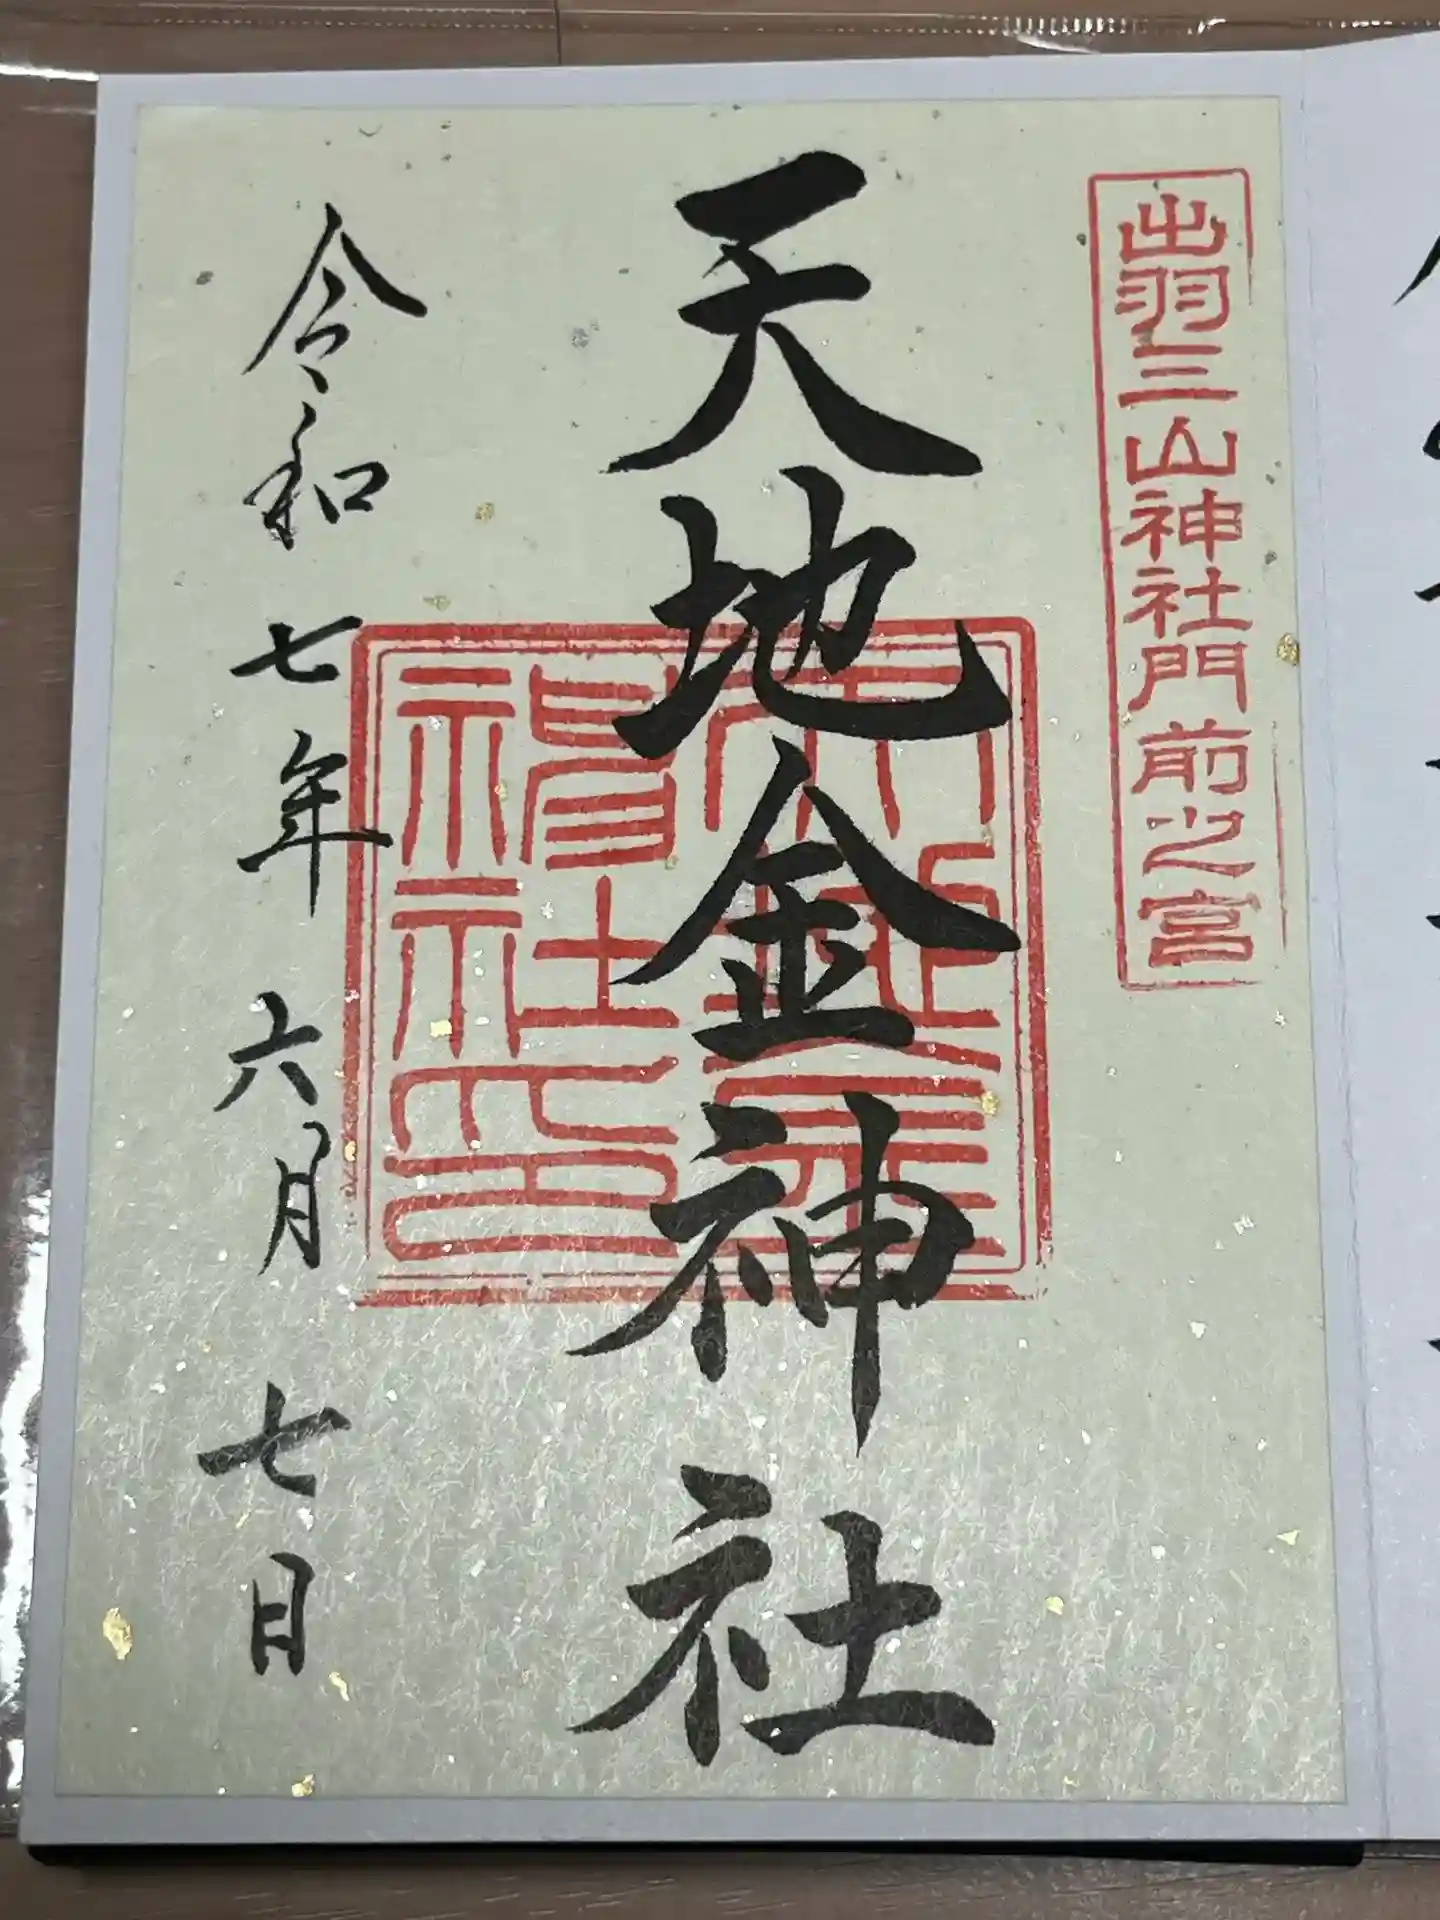 出羽三山神社門前之宮
天地金神社
天地金神社印
令和七年六月七日